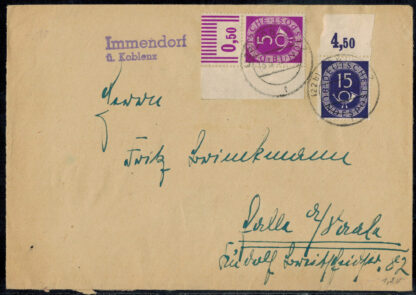 0,50
DEUTSCHE BUNDESPOST
5
4,50
DEUTSCHE BUNDESPOST
15
(22b)
Immendorf
ü. Koblenz
Herrn
Fritz Brinkmann
Halle a/Saale
Rudolf Breitscheidstr. 82